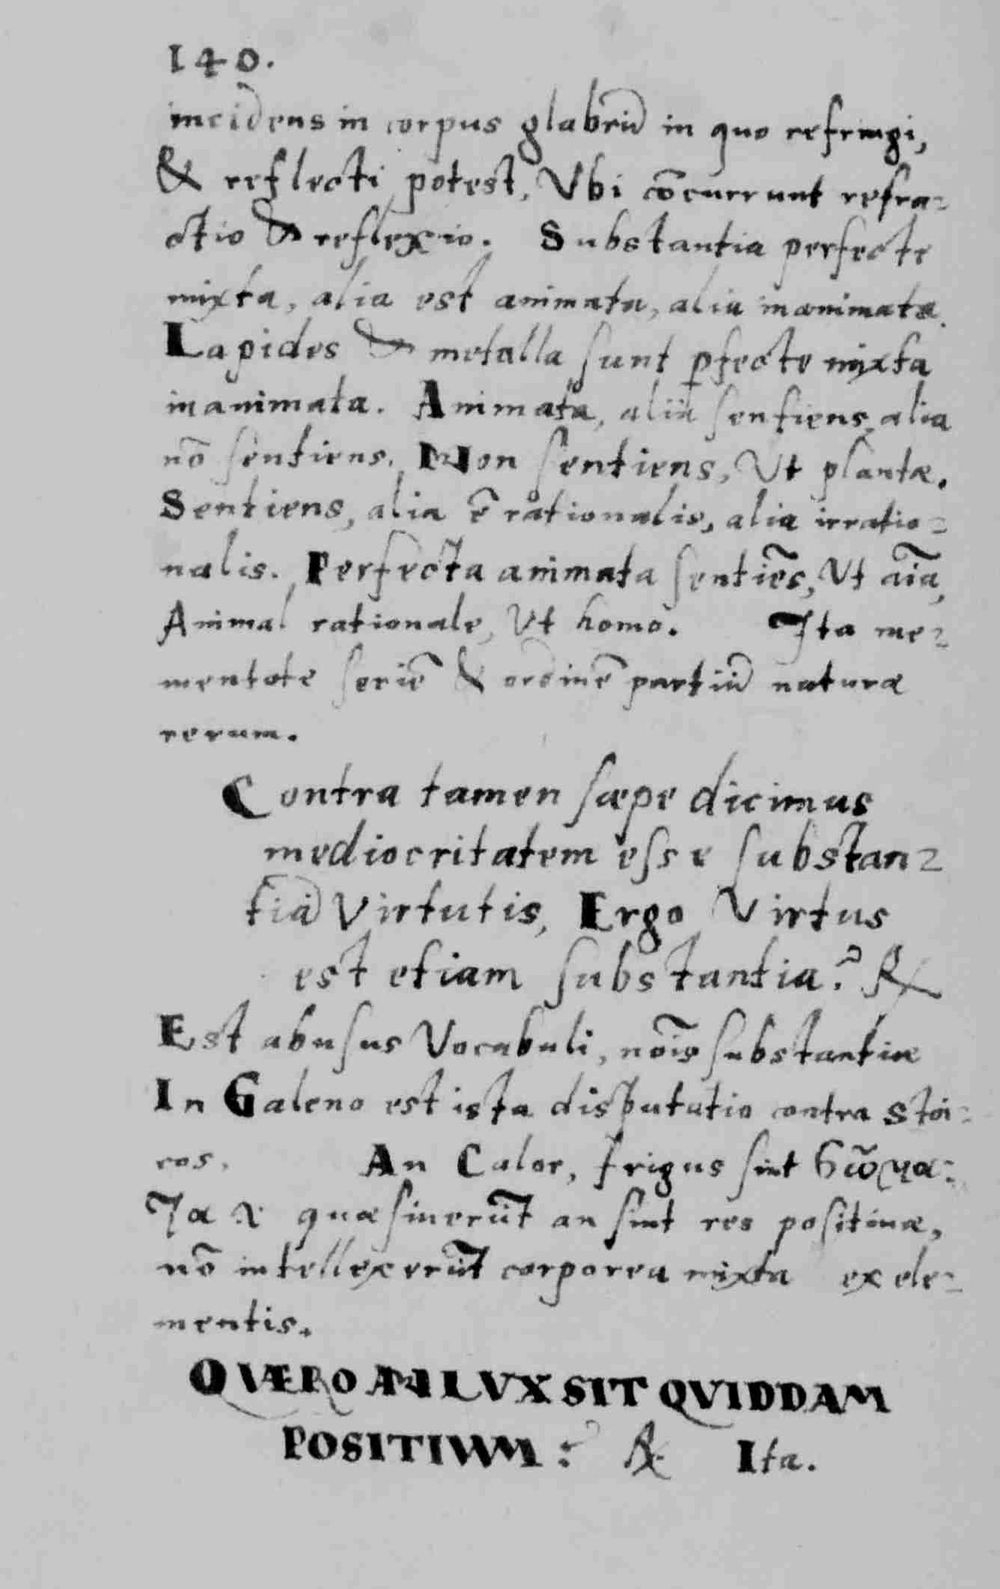 140.
incidens in corpus glabrũ in quo refringi,
& reflecti potest, Vbi cõcurrunt refra=
ctio & reflexio. Substantia perfecte
mixta, alia est animata, alia inanimata.
Lapides & metalla sunt ꝑfecte mixta
inanimata. Animata, alia sentiens, alia
nõ sentiens. Non sentiens, Vt plantæ.
Sentiens, alia ẽ rationalis, alia irratio=
nalis. Perfecta animata sentiẽs, Vt aĩa,
Animal rationale, Vt homo. Ita me=
mentote seriẽ & ordinẽ partiũ naturæ
rerum.
Contra tamen sæpe dicimus
mediocritatem esse substan=
tiã Virtutis, Ergo Virtus
est etiam substantia? ℞
Est abusus Vocabuli, nõis substantiæ
In Galeno est ista disputatio contra Stoi=
cos. An Calor, frigus sint σώμα=
τα & quæsiuerũt an sint res positiuæ,
nõ intellexerũt corporea mixta ex ele=
mentis.
QVÆRO AN LVX SIT QVIDDAM
POSITIVVM? ℞ Ita.